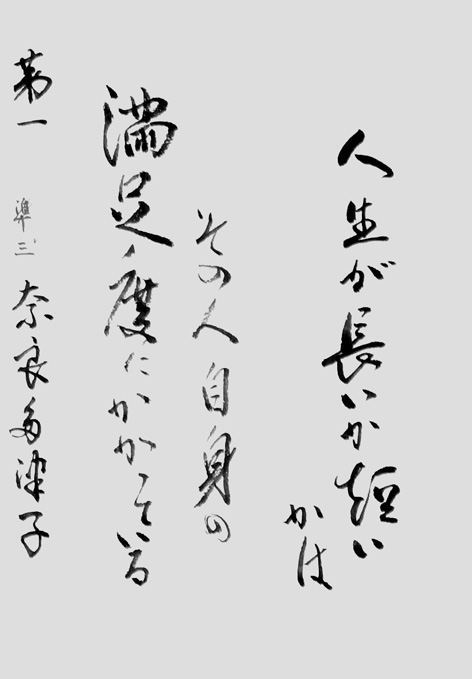 人生が長いか短い
かは
その人自身の
満足度にかかっている
第一 準三 奈良多津子